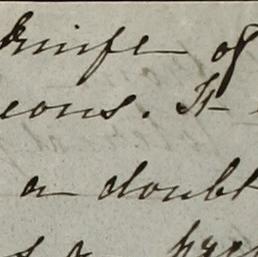 knife of
eons. It
a doubt